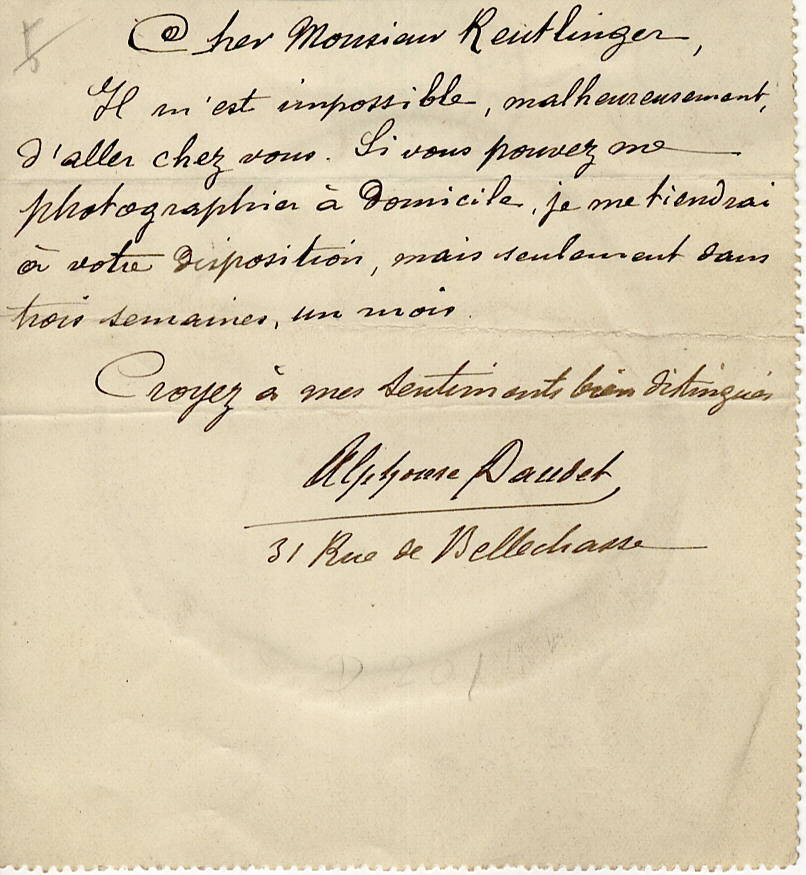 Cher Monsieur Reutlinger,
Il m'est impossible, malheureusement,
d'aller chez vous. Si vous pouvez me
photographier à domicile, je me tiendrai
à votre disposition, mais seulement dans
trois semaines, un mois.
Croyez à mes sentiments bien distingués
Alphonse Daudet
31 Rue de Bellechasse
D 201